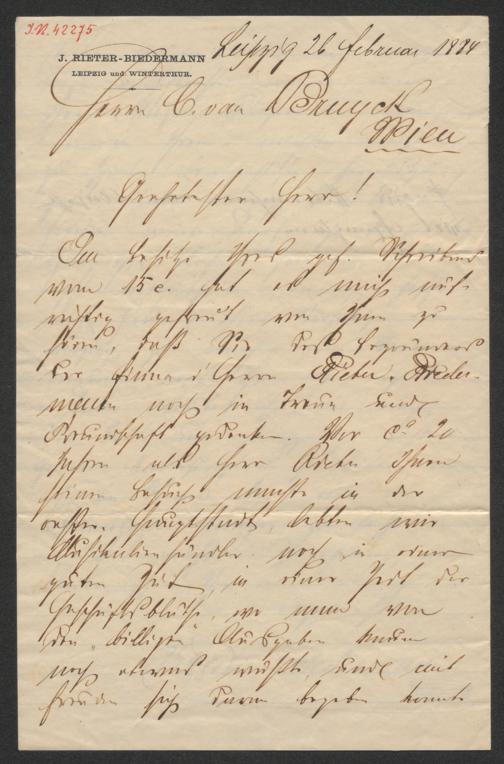 I.N. 42275
J. RIETER-BIEDERMANN
LEIPZIG und WINTERTHUR.
Leipzig 26 Februar 1884
Herrn C. van Bruyck
Wien
Geehrtester Herr!
Im Besitze Ihres gef. Schreibens
vom 15 c. hat es mich auf-
richtig gefreut von Ihnen zu
hören, daß Sie des Begründers
der Firma, Herrn Rieter-Bieder-
mann noch in Treue und
Freundschaft gedenken. Vor ca 20
Jahren als Herr Rieter Ihnen
seinen Besuch machte in der
oesterr. Hauptstadt, lebten wir
Musikalienhändler noch in einer
guten Zeit, in einer Zeit der
Geschäftsblüthe, wo man von
den "billigen" Ausgaben kaum
noch etwas wußte, und mit
Freuden sich daran begeben konnte